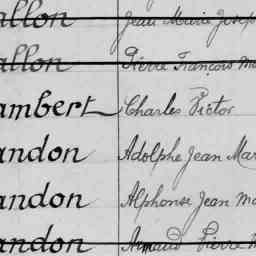 allon Jean Marie Josep
allon Pierre François Ma
ambert Charles Victor
andon Adolphe Jean Mar
andon Alphonse Jean Ma
andon Armand Pierre M